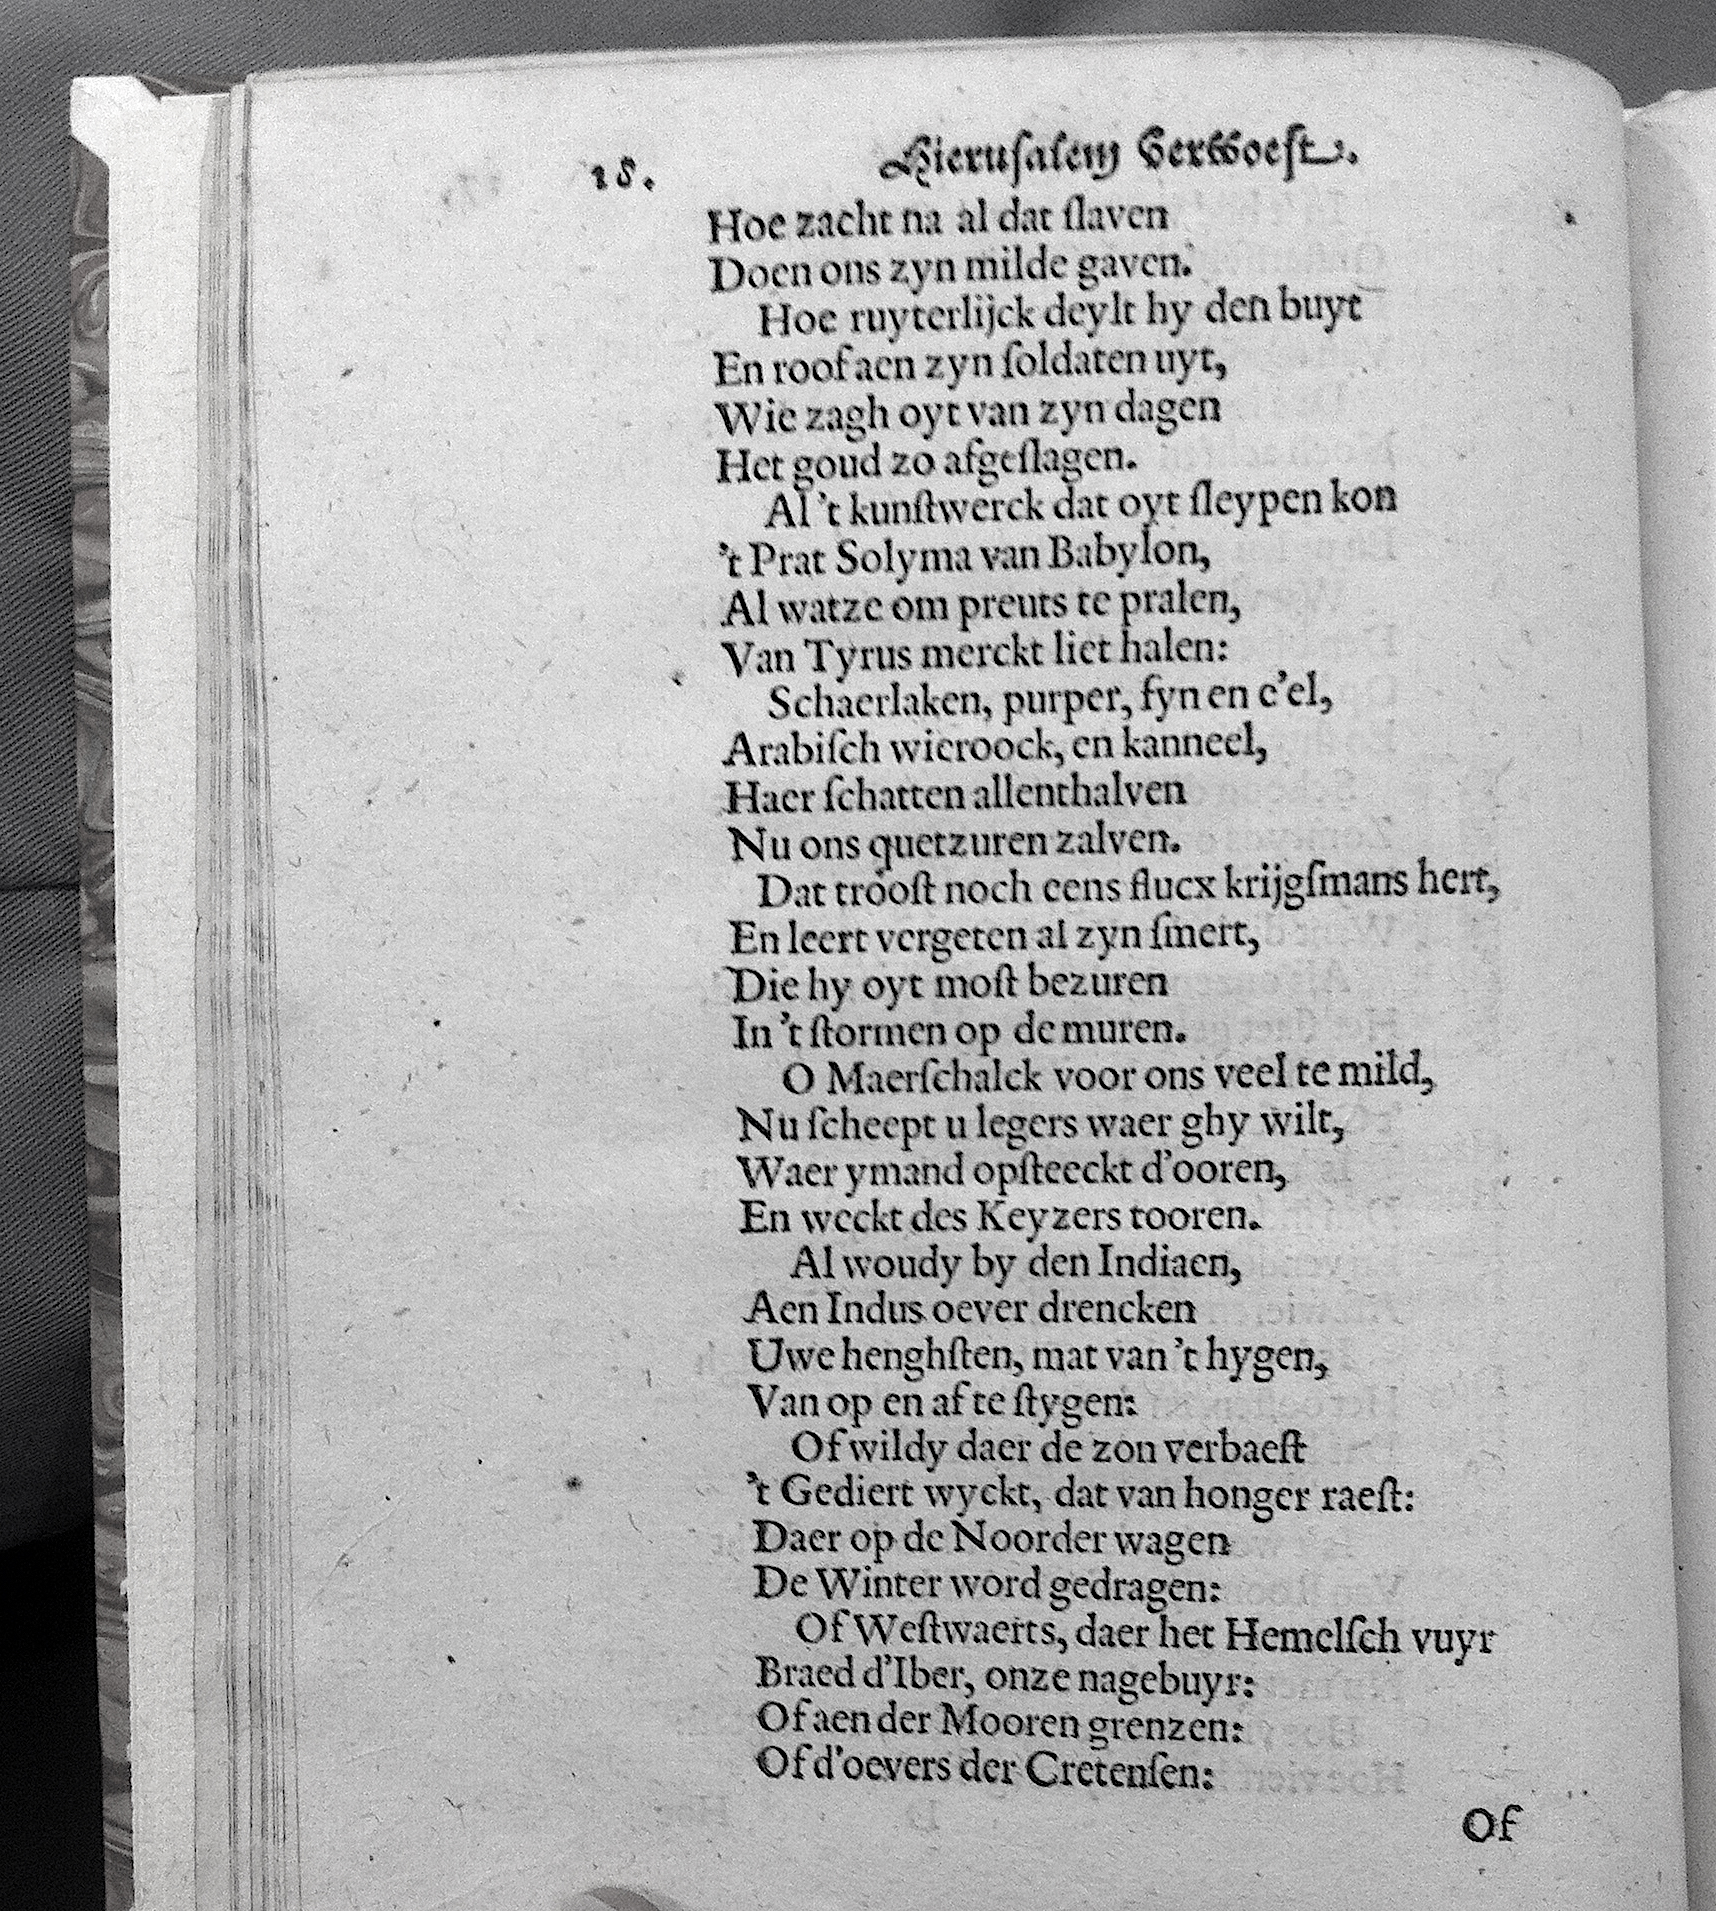 18. Hierusalem Verwoest.
Hoe zacht na al dat ſlaven
Doen ons zyn milde gaven.
Hoe ruyterlijck deylt hy den buyt
En roof aen zyn ſoldaten uyt,
Wie zagh oyt van zyn dagen
Het goud zo afgeſlagen.
Al 't kunſtwerck dat oyt ſleypen kon
't Prat Solyma van Babylon,
Al watze om preuts te pralen,
Van Tyrus merckt liet halen:
Schaerlaken, purper, fyn en e'el,
Arabiſch wieroock, en kanneel,
Haer ſchatten allenthalven
Nu ons quetzuren zalven.
Dat trooſt noch eens flucx krijgſmans hert,
En leert vergeten al zyn ſmert,
Die hy oyt moſt bezuren
In 't ſtormen op de muren.
O Maerſchalck voor ons veel te mild,
Nu ſcheept u legers waer ghy wilt,
Waer ymand opſteeckt d'ooren,
En weckt des Keyzers tooren.
Al woudy by den Indiaen,
Aen Indus oever drencken
Uwe henghſten, mat van 't hygen,
Van op en af te ſtygen:
Of wildy daer de zon verbaeſt
't Gediert wyckt, dat van honger raeſt:
Daer op de Noorder wagen
De Winter word gedragen:
Of Weſtwaerts, daer het Hemelſch vuyr
Braed d'Iber, onze nagebuyr:
Of aen der Mooren grenzen:
Of d'oevers der Cretenſen:
Of